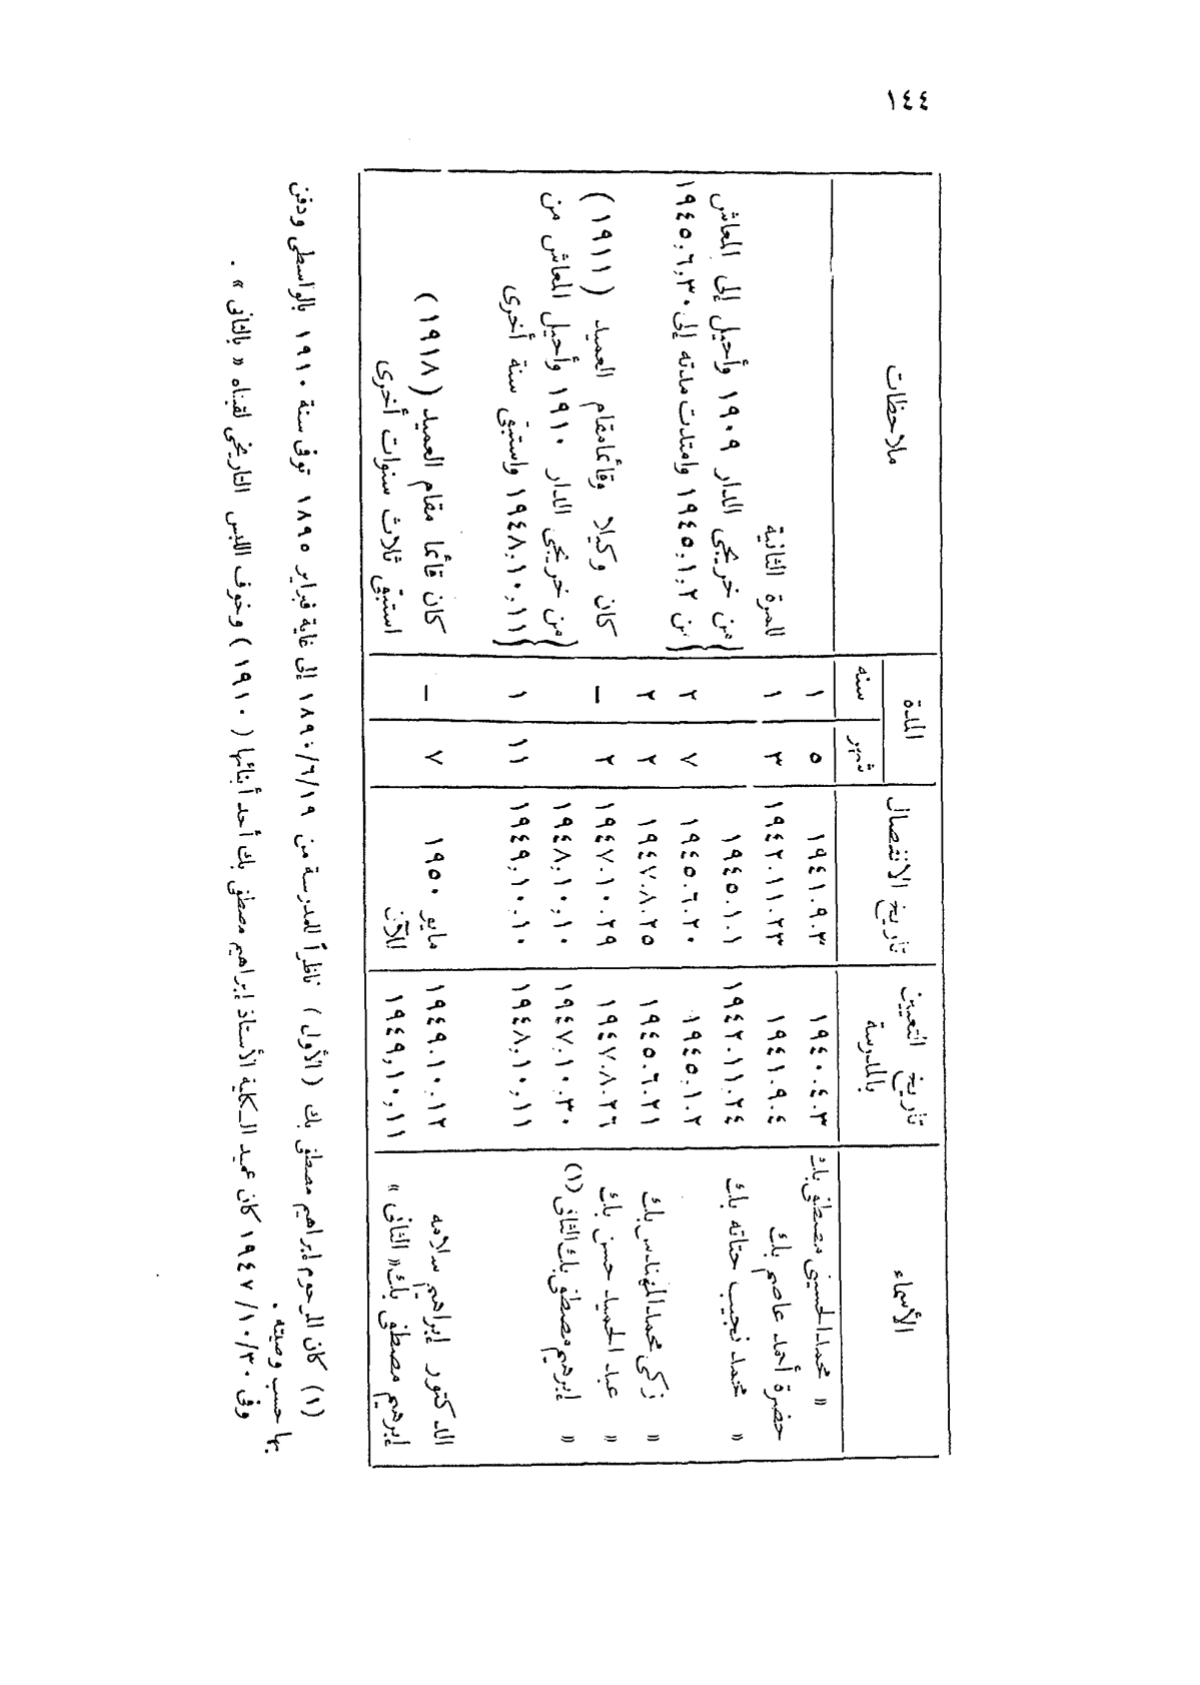 ١٤٤
الأسماء | تاريخ التعيين بالمدرسة | تاريخ الانفصال | المدة: شهر | سنه | ملاحظات
» محمد الحسينى مصطفى بك | ١٩٤٠.٤.٣ | ١٩٤١.٩.٣ | ٥ | ١
حضرة أحمد عاصم بك | ١٩٤١.٩.٤ | ١٩٤٢.١١.٢٣ | ٣ | ١ | للمرة الثانية
» محمد نجيب حتاته بك | ١٩٤٢.١١.٢٤ | ١٩٤٥.١.١ | | | من خريجى الدار ١٩٠٩ وأحيل إلى المعاش
١٩٤٥.١.٢ | ١٩٤٥.٦.٢٠ | ٧ | ٢ | من ١٩٤٥.١.٢ وامتدت مدته إلى ١٩٤٥.٦.٣٠
» زكى محمد المهندس بك | ١٩٤٥.٦.٢١ | ١٩٤٧.٨.٢٥ | ٢ | ٢
» عبد الحميد حسن بك | ١٩٤٧.٨.٢٦ | ١٩٤٧.١٠.٢٩ | ٢ | — | كان وكيلا وقائمامقام العميد (١٩١١)
» إبرهيم مصطفى بك الثانى (١) | ١٩٤٧.١٠.٣٠ | ١٩٤٨.١٠.١٠ | | | من خريجى الدار ١٩١٠ وأحيل المعاش من
١٩٤٨.١٠.١١ | ١٩٤٩.١٠.١٠ | ١١ | ١ | ١٩٤٨.١٠.١١ واستبقى سنة أخرى
الدكتور إبراهيم سلامه | ١٩٤٩.١٠.١٢ | مايو ١٩٥٠ | ٧ | — | كان قائما مقام العميد (١٩١٨)
إبرهيم مصطفى بك « الثانى » | ١٩٤٩.١٠.١١ | للآن | | | استبقى ثلاث سنوات أخرى
(١) كان المرحوم إبراهيم مصطفى بك (الأول) ناظراً للمدرسة من ١٨٩٠/٦/١٩ إلى غاية فبراير ١٨٩٥ توفى سنة ١٩١٠ بالواسطى ودفن
بها حسب وصيته .
وفى ١٩٤٧/١٠/٣٠ كان عميد الكلية الأستاذ إبراهيم مصطفى بك أحد أبنائها (١٩١٠) وخوف اللبس التاريخى لقبناه « بالثانى » .